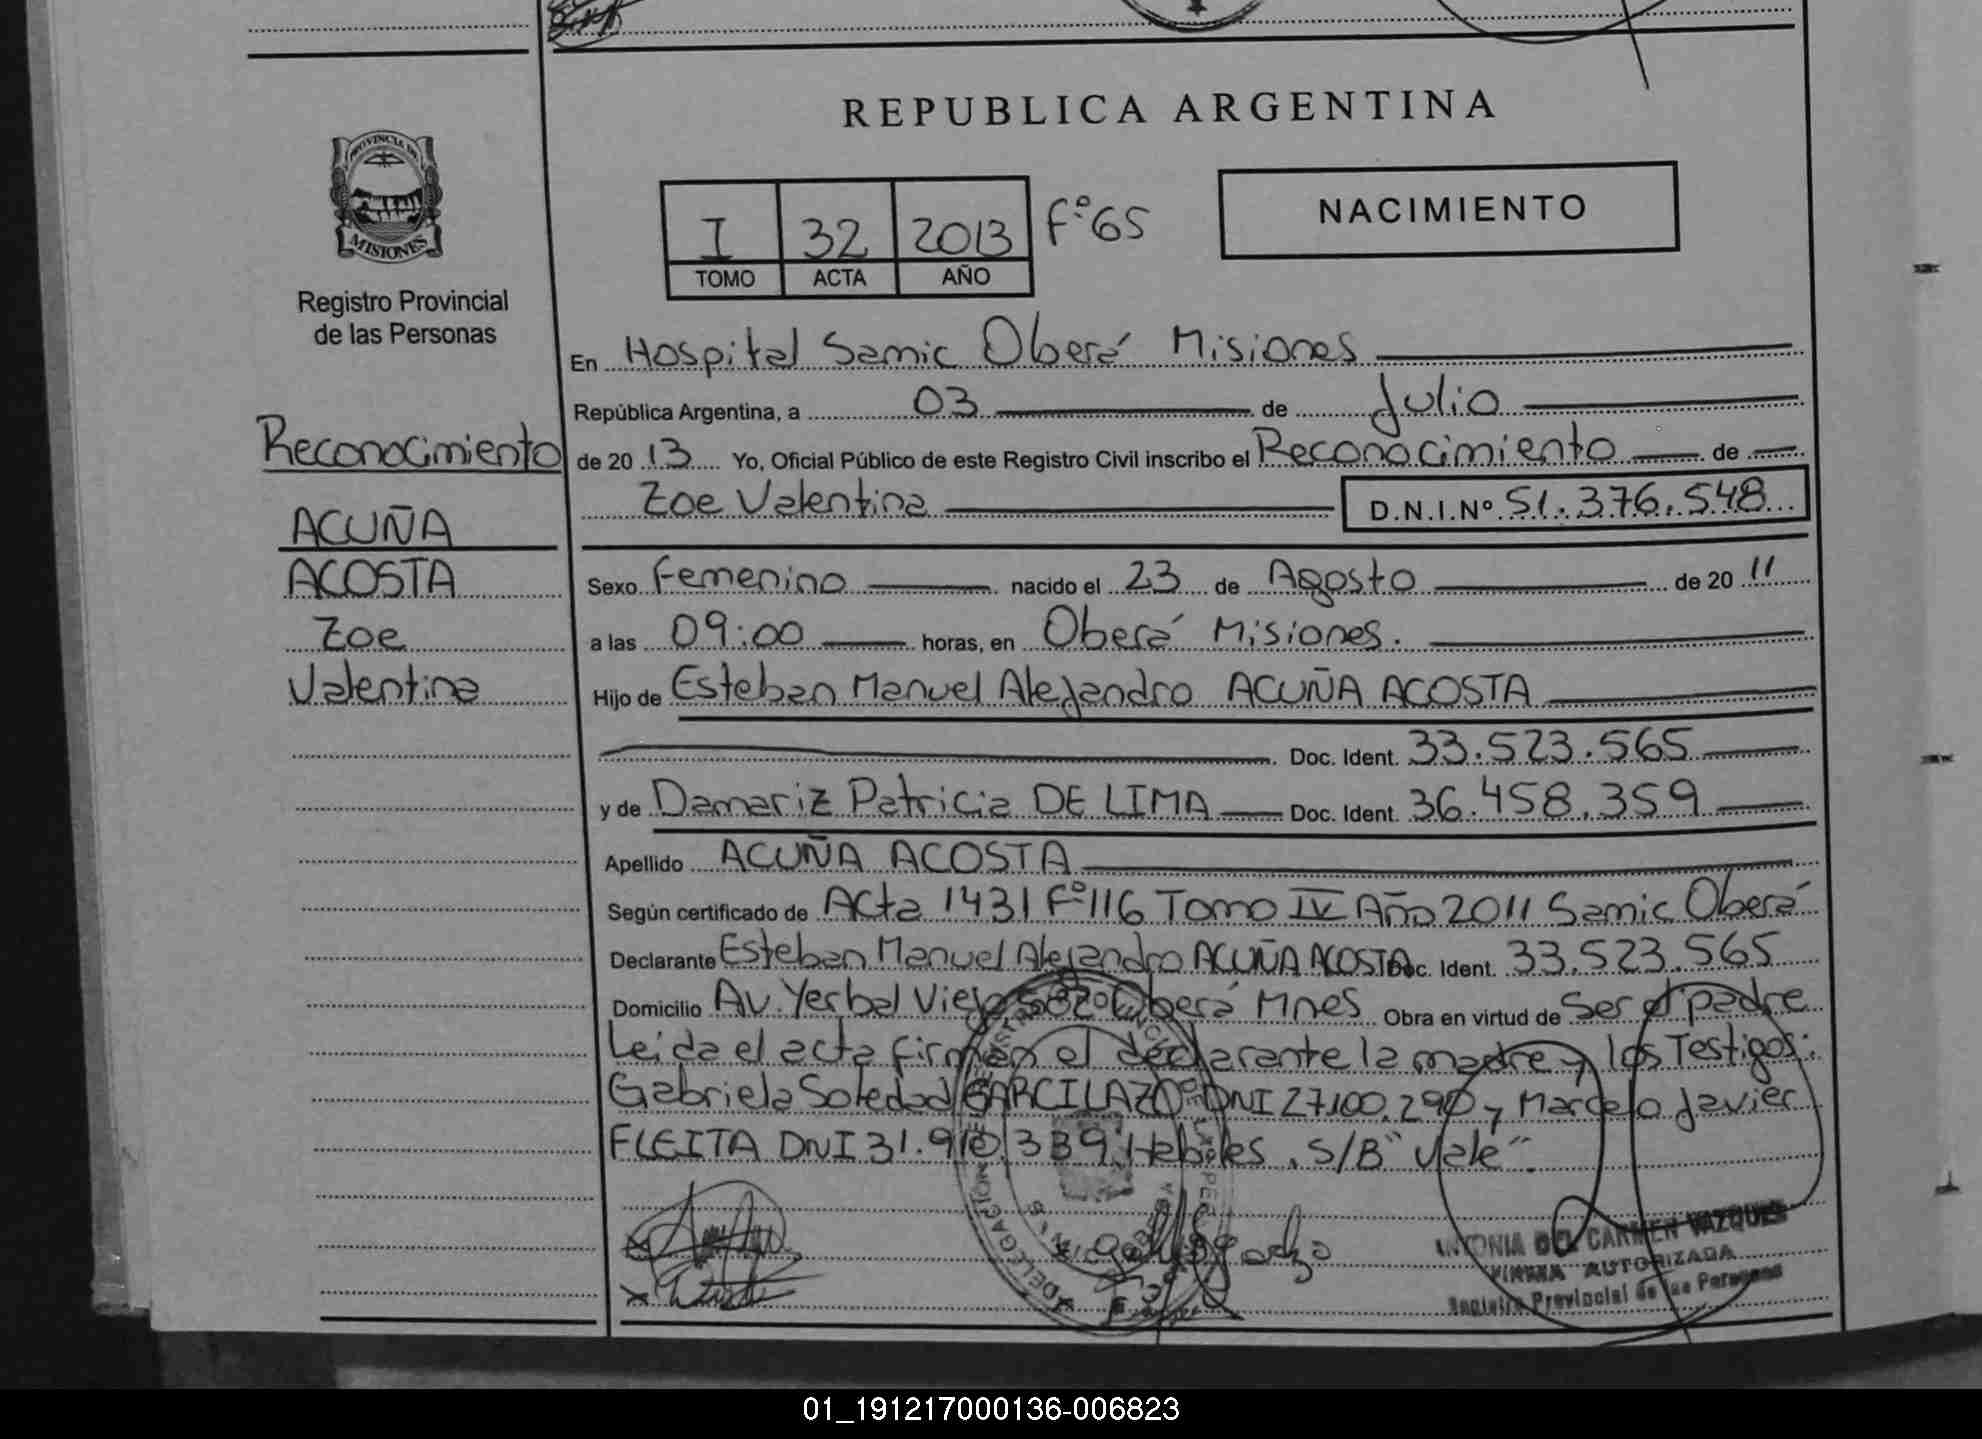 REPUBLICA ARGENTINA
PROVINCIA DE
MISIONES
Registro Provincial
de las Personas
I 32 2013 Fº 65
TOMO ACTA AÑO
NACIMIENTO
En Hospital Samic Oberá Misiones
República Argentina, a 03 de Julio
Reconocimiento
de 2013 Yo, Oficial Público de este Registro Civil inscribo el Reconocimiento de
Zoe Valentina D.N.I.Nº 51.376.548
ACUÑA
ACOSTA
Zoe
Valentina
Sexo Femenino nacido el 23 de Agosto de 2011
a las 09:00 horas, en Oberá Misiones.
Hijo de Esteban Manuel Alejandro ACUÑA ACOSTA
Doc. Ident. 33.523.565
y de Damariz Patricia DE LIMA Doc. Ident. 36.458.359
Apellido ACUÑA ACOSTA
Según certificado de Acta 1431 Fº 116 Tomo IV Año 2011 Samic Oberá
Declarante Esteban Manuel Alejandro ACUÑA ACOSTA Doc. Ident. 33.523.565
Domicilio Av. Yerbal Viejo Oberá Mnes Obra en virtud de Ser el padre
Leida el acta firman el declarante la madre y los Testigos:
Gabriela Soledad GARCILAZO DNI 27.100.290 y Marcelo Javier
FLEITA DNI 31.910.339 Habiles. S/B "Vale".
ANTONIA DEL CARMEN VAZQUEZ
FIRMA AUTORIZADA
Registro Provincial de las Personas
01_191217000136-006823